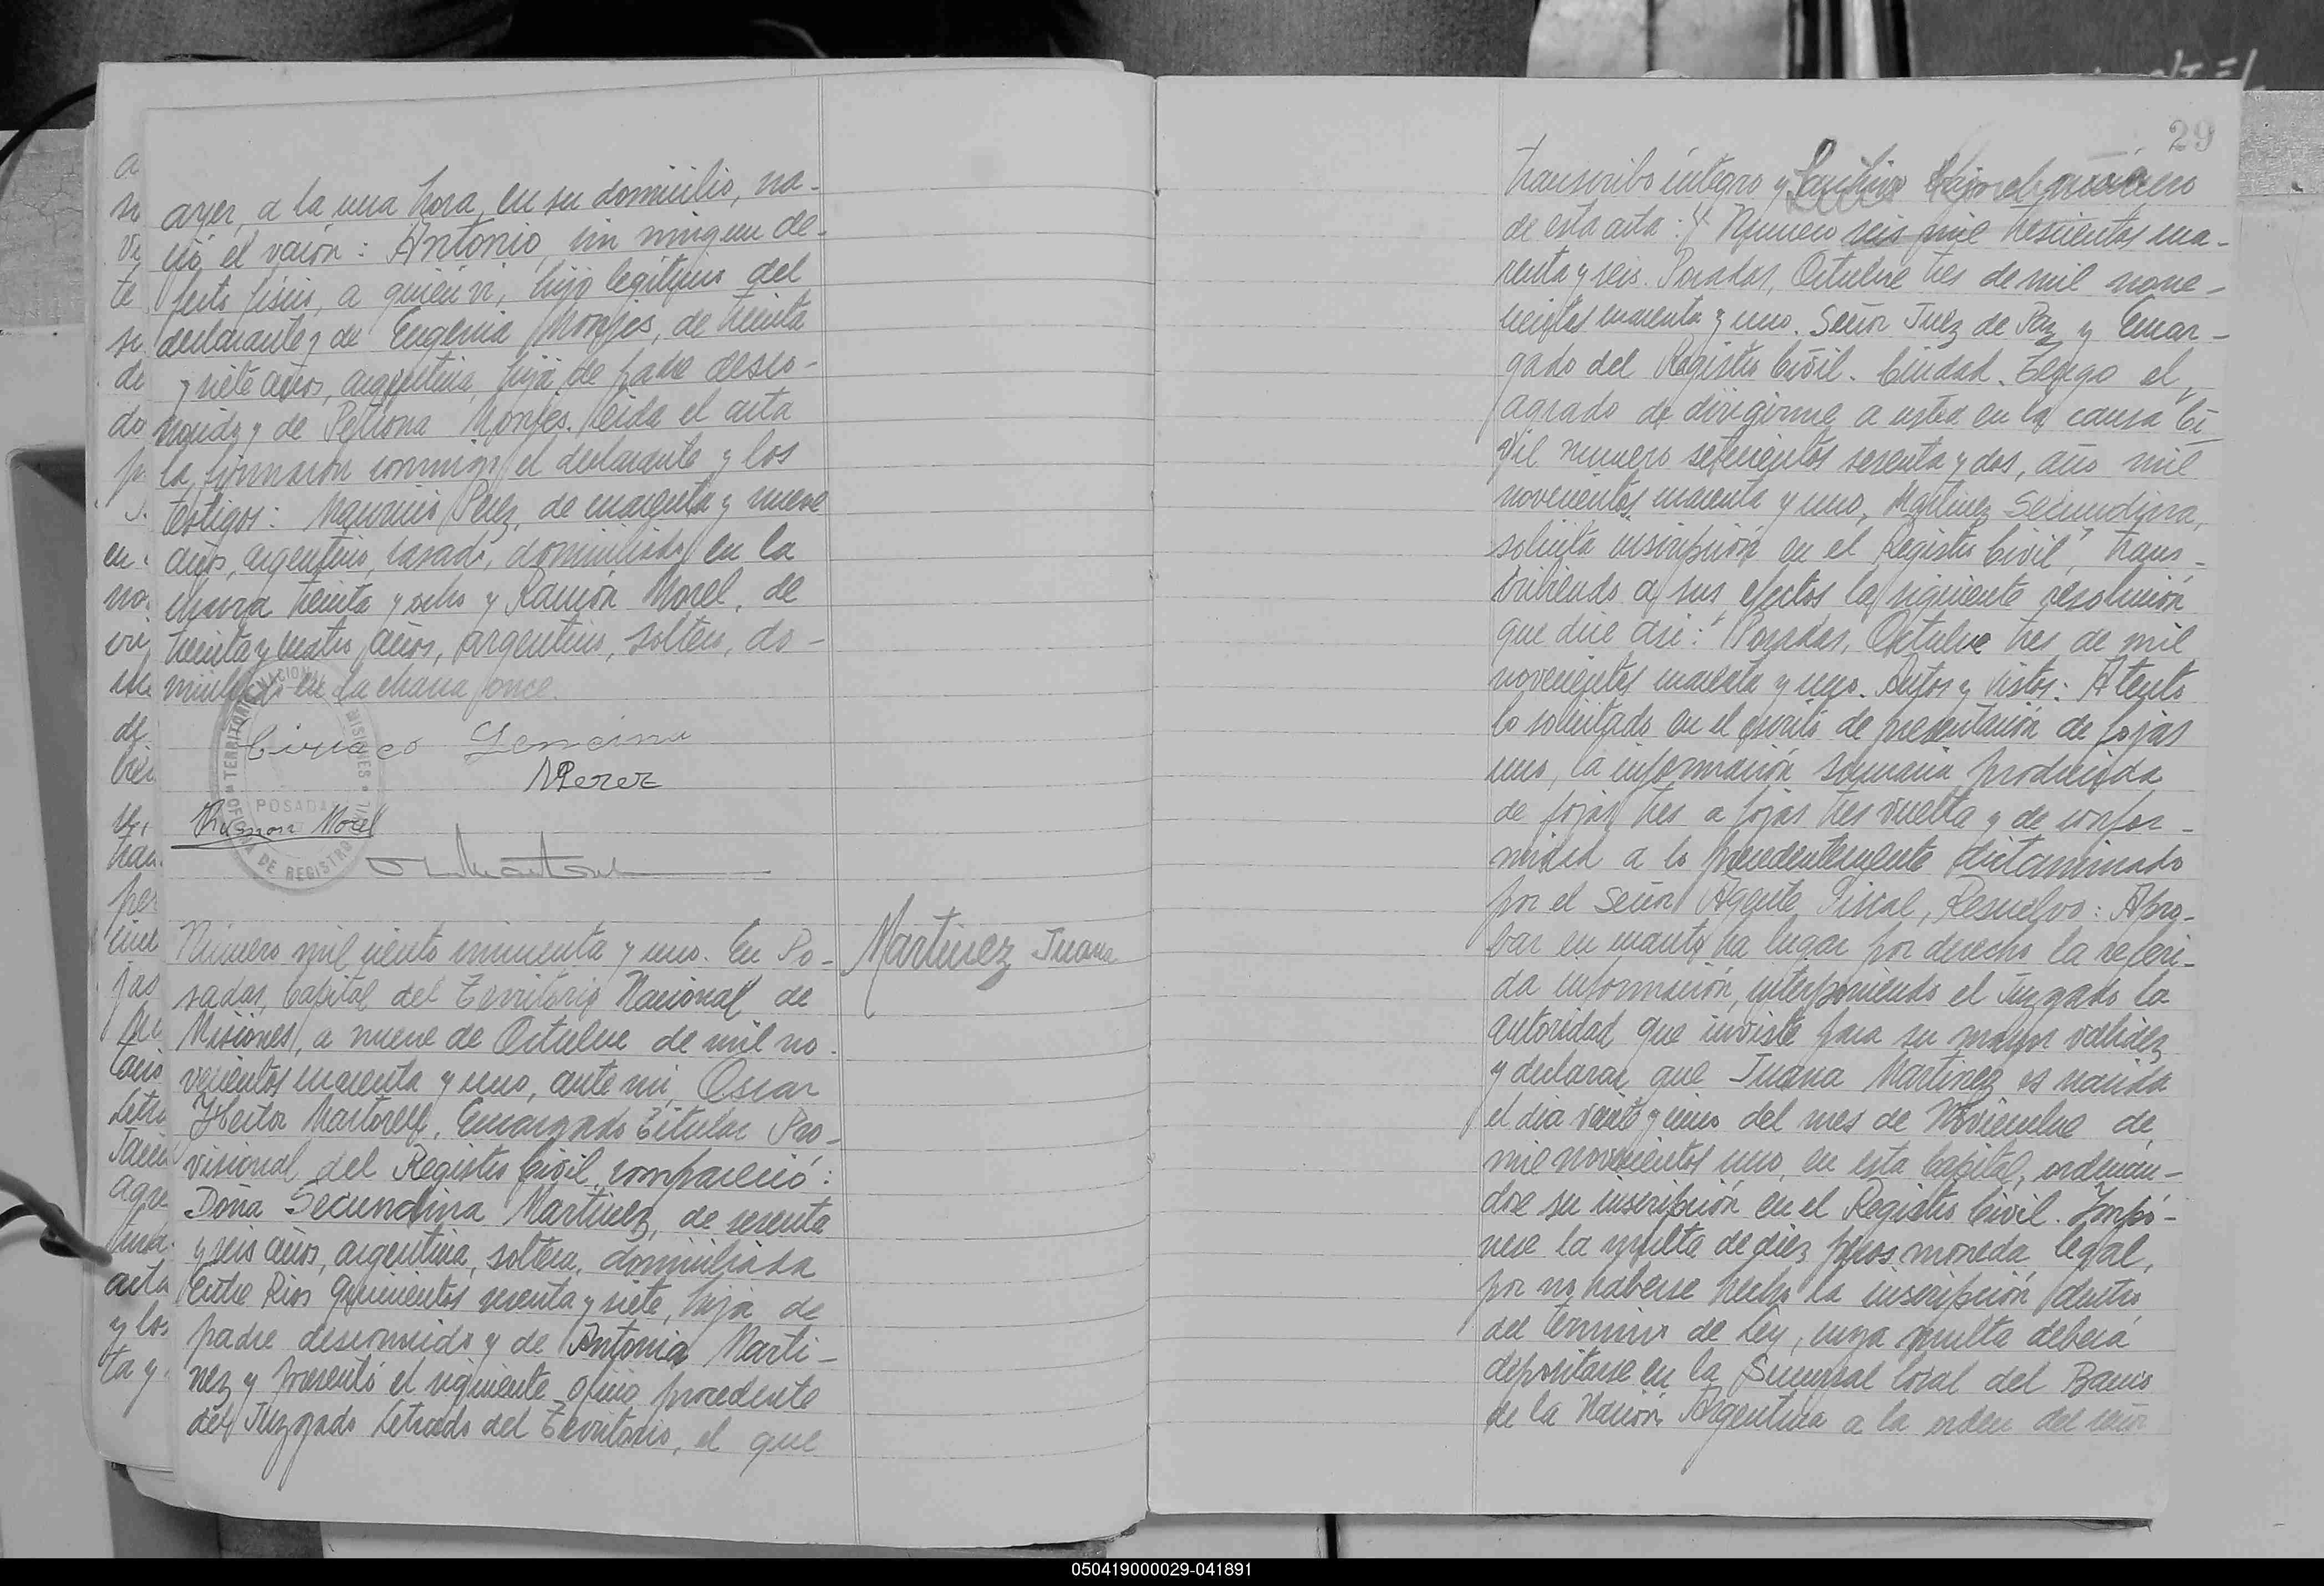 ayer, a la una hora, en su domicilio, na-
ció el varón: Antonio, sin ningun de-
fecto fisico, a quien vi, hijo legitimo del
declarante y de Eugenia Monjes, de treinta
y siete años, argentina, hija de padre desco-
nocido y de Petrona Monjes. Leida el acta
la firmaron conmigo el declarante y los
testigos: Mauricio Perez, de cuarenta y nueve
años, argentino, casado, domiciliado en la
chacra treinta y ocho y Ramón Morel, de
treinta y cuatro años, argentino, soltero, do-
miciliado en la chacra once.
Ciriaco
MPerez
Ramon Morel
TERRITORIO NACIONAL MISIONES
POSADAS
OFICINA DE REGISTRO CIVIL
Número mil ciento cincuenta y uno. En Po-
Martinez Juana
sadas, Capital del Territorio Nacional de
Misiones, a nueve de Octubre de mil no-
vecientos cuarenta y uno, ante mi, Oscar
Héctor Martorell, Encargado Titular Pro-
visional del Registro Civil, compareció:
Doña Secundina Martinez, de sesenta
y seis años, argentina, soltera, domiciliada
Entre Rios quinientos y siete, hija de
padre desconocido y de Antonia Marti-
nez y presentó el siguiente oficio procedente
del Juzgado Letrado del Territorio, el que
29
transcribo integro y
de esta acta: "Numero seis mil trescientos cua-
renta y seis. Posadas, Octubre tres de mil nove-
cientos cuarenta y uno. Señor Juez de Paz y Encar-
gado del Registro Civil. Ciudad. Tengo el
agrado de dirigirme a usted en la causa Ci-
vil numero setecientos sesenta y dos, año mil
novecientos cuarenta y uno, Martinez Secundina,
solicita inscripción en el Registro Civil", trans-
cribiendo a sus efectos la siguiente resolución
que dice asi: "Posadas, Octubre tres de mil
novecientos cuarenta y uno. Autos y vistos: Atento
lo solicitado en el escrito de presentación de fojas
uno, la información sumaria producida
de fojas tres a fojas tres vuelta y de confor-
midad a lo precedentemente dictaminado
por el señor Agente Fiscal, Resuelvo: Apro-
bar en cuanto ha lugar por derecho la referi-
da información, interponiendo el Juzgado la
autoridad que inviste para su mayor validez
y declarar que Juana Martinez es nacida
el dia veinte y cinco del mes de Noviembre de
mil novecientos uno, en esta Capital, ordenán-
dose su inscripción en el Registro Civil. Impó-
nese la multa de diez pesos moneda legal,
por no haberse hecho la inscripción dentro
del termino de Ley, cuya multa deberá
depositarse en la Sucursal local del Banco
de la Nación Argentina a la orden del señor
050419000029-041891